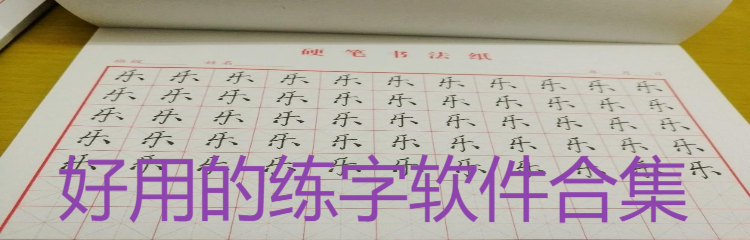 硬笔书法纸
乐乐乐乐乐乐乐乐乐乐乐
乐乐乐乐乐乐乐乐乐乐乐
乐乐乐乐乐乐乐乐乐乐乐
乐乐乐乐乐乐乐乐乐乐乐
乐乐乐乐乐乐乐乐乐乐乐
好用的练字软件合集